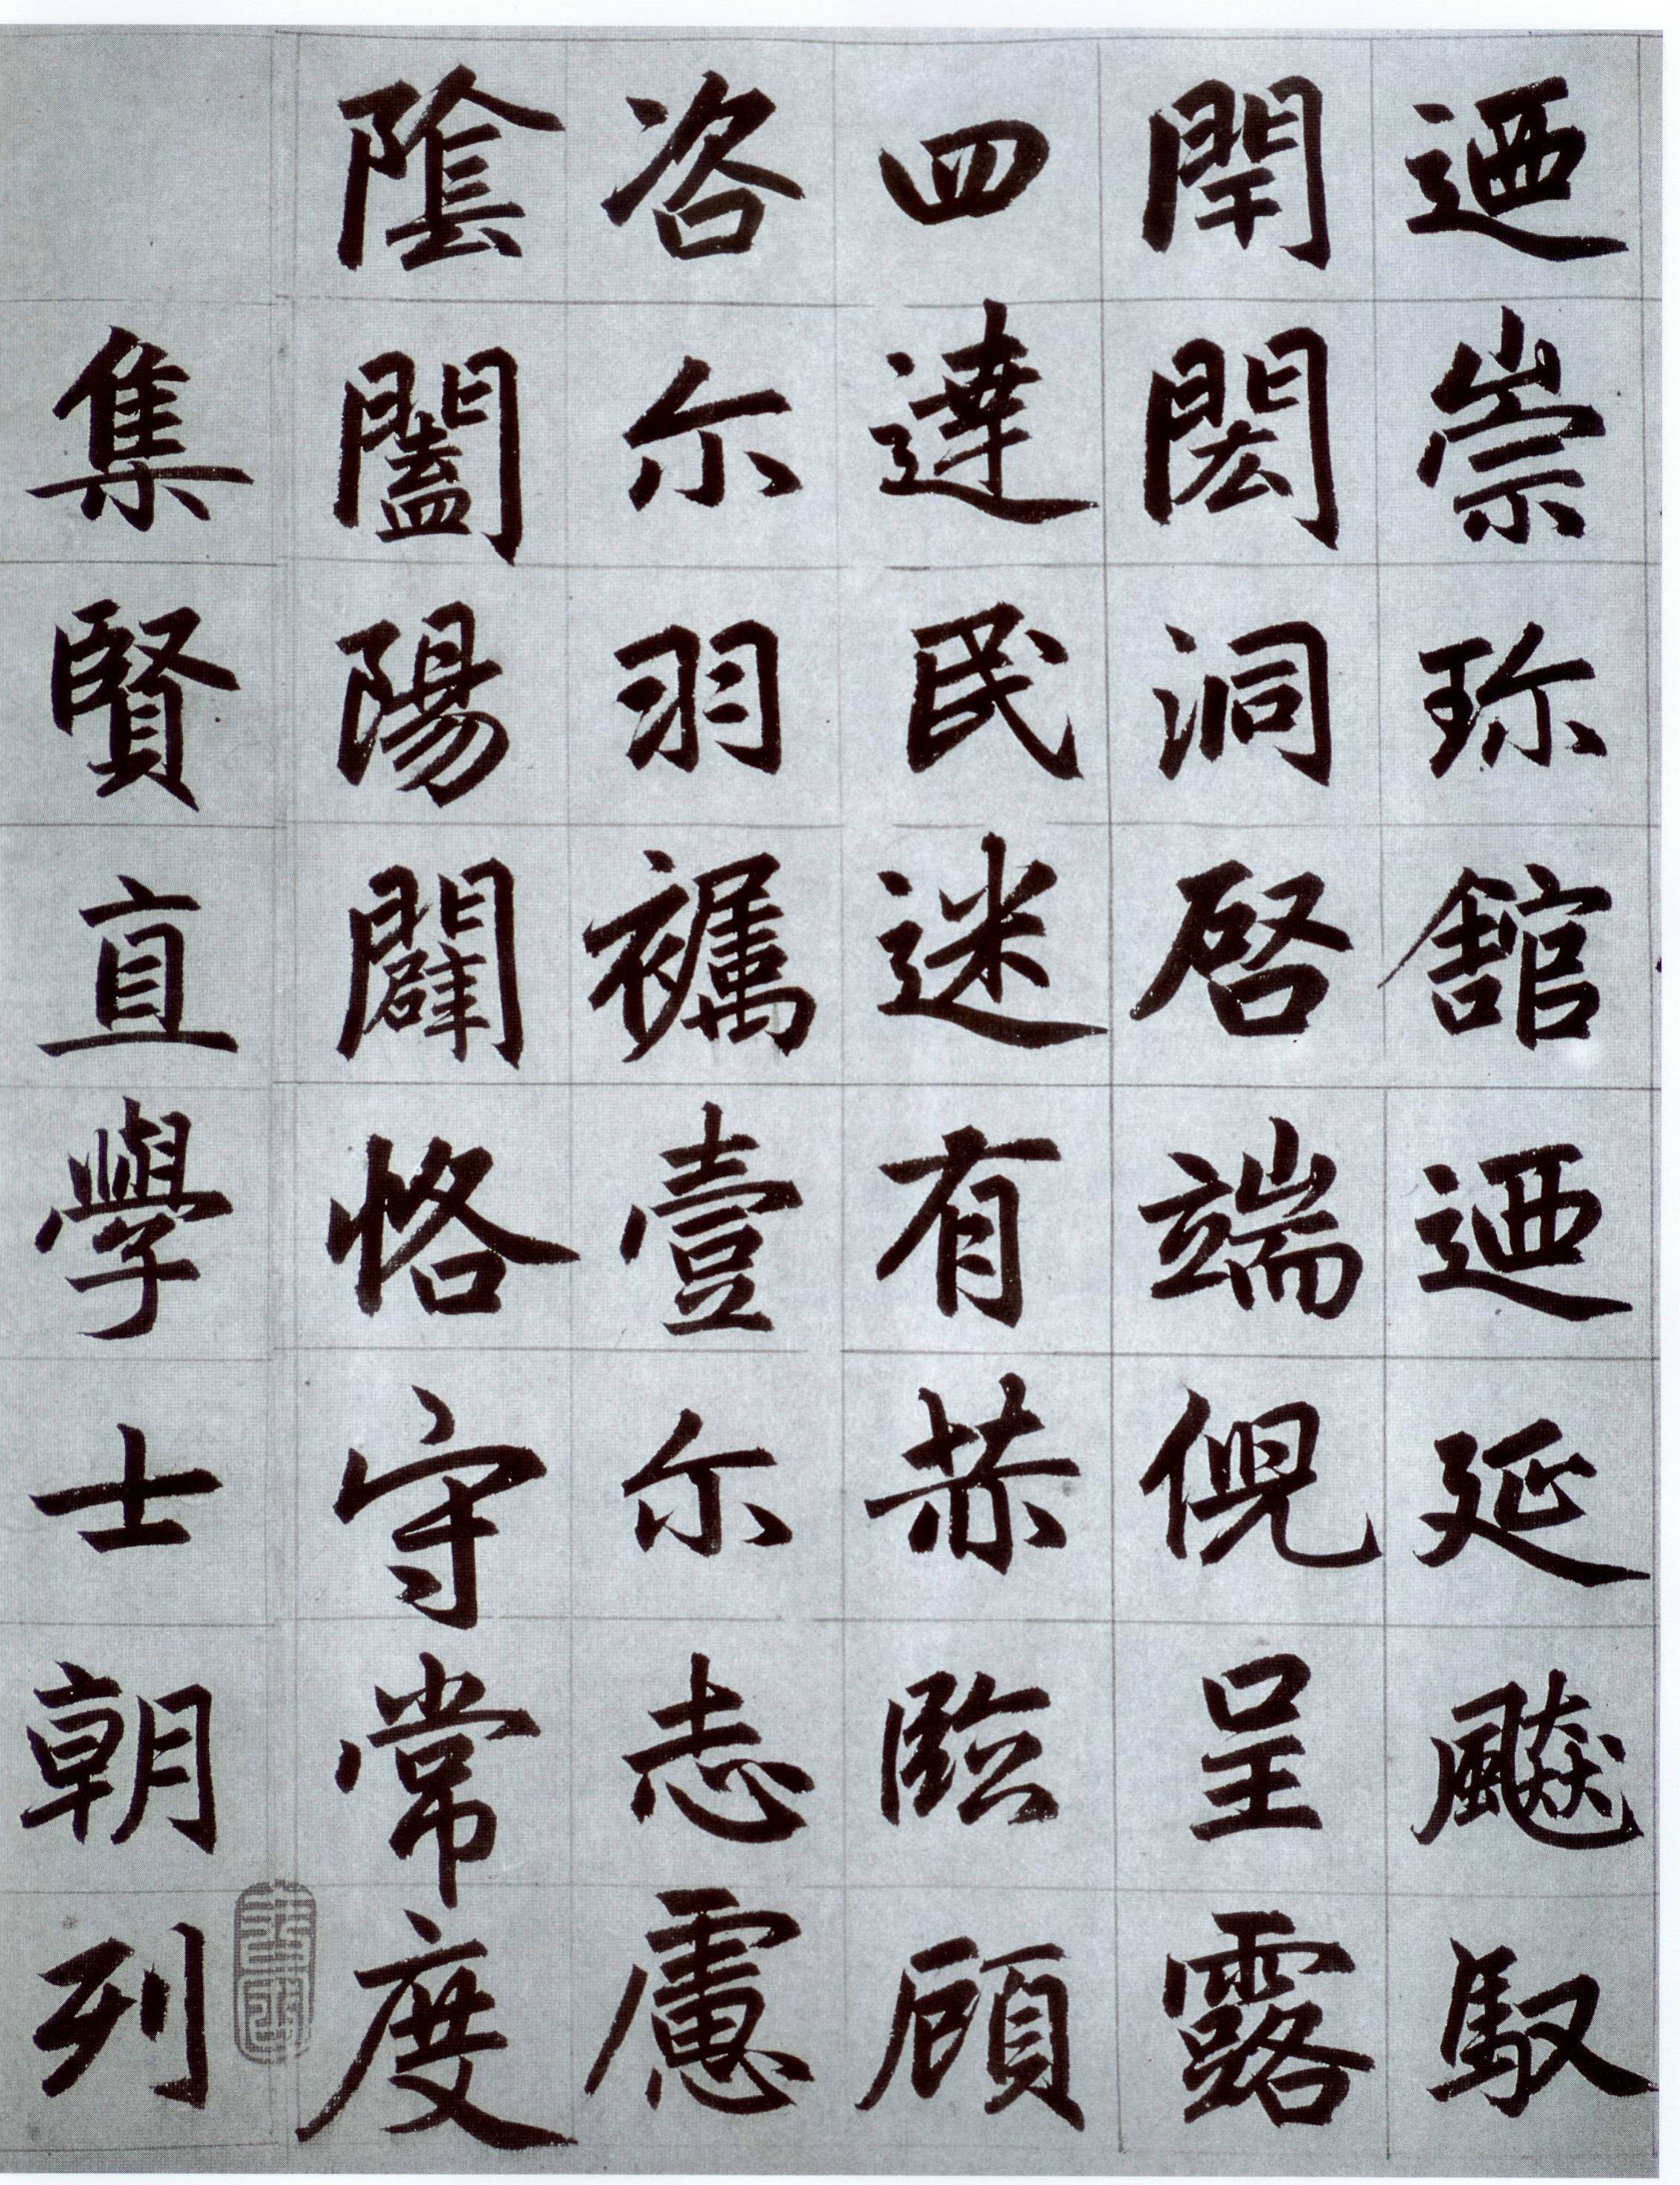 迺崇珎舘迺延飈馭
閈閎洞啓端倪呈露
四達民迷有赫臨顧
咨尓羽襹壹尓志慮
陰闔陽闢恪守常度
集賢直學士朝列